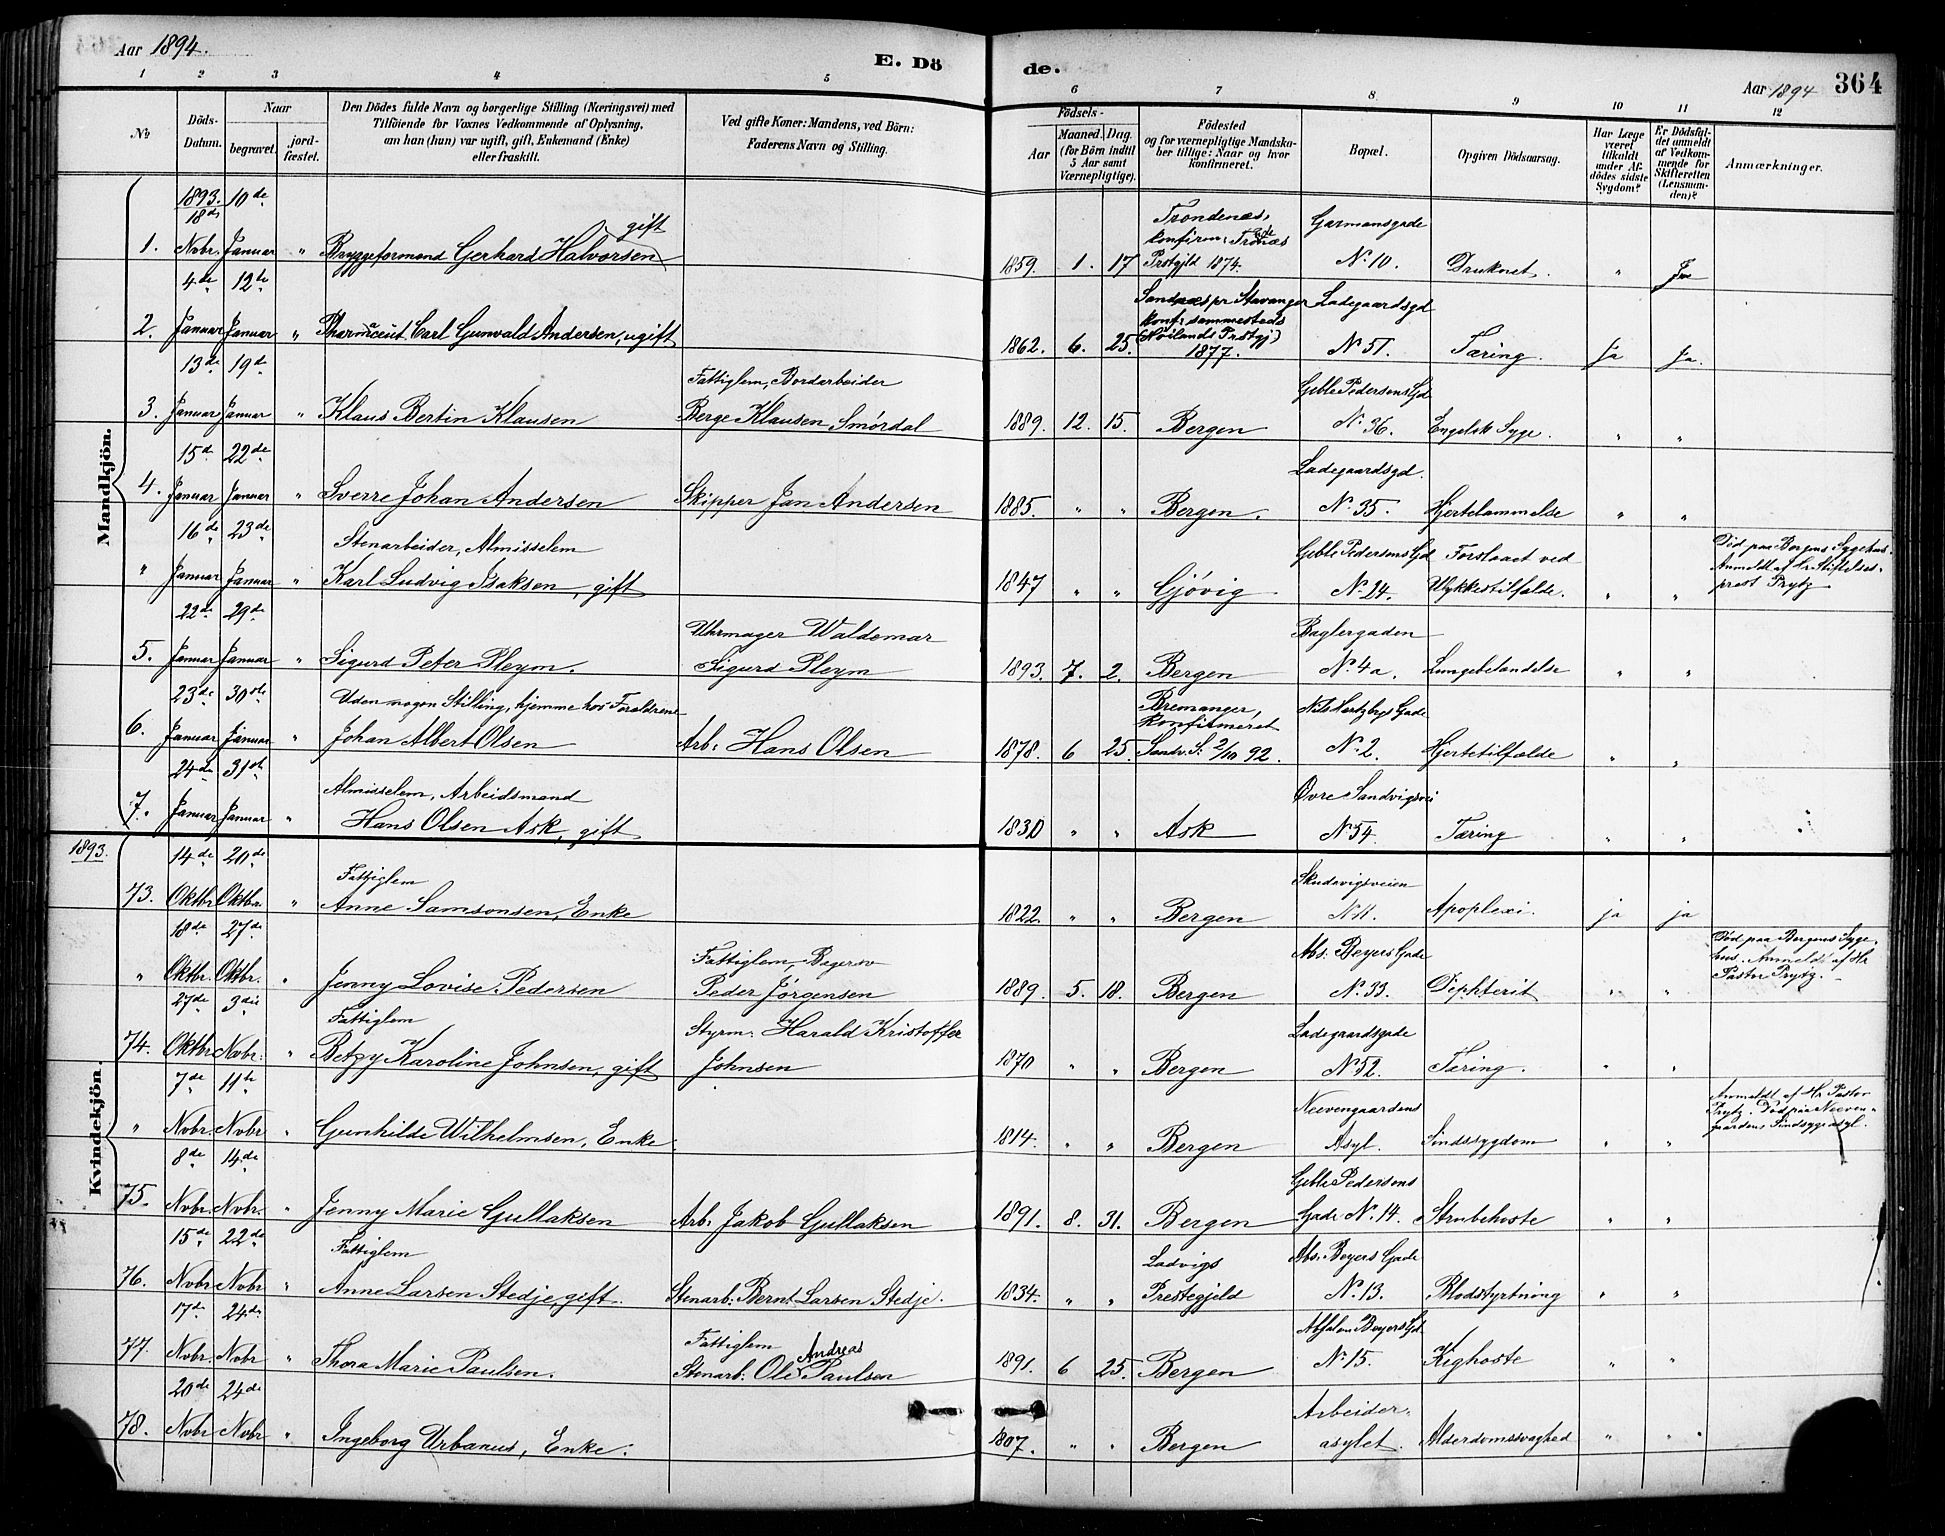 Aar 1894.
E. Dö
de.
Aar 1894
364
1 2 3 4 5 6 7 8 9 10 11 12
No
Döds-
Datum.
Naar
begravet.
jord-
fæstet.
Den Dödes fulde Navn og borgerlige Stilling (Næringsvei) med
Tilföiende for Voxnes Vedkommende af Oplysning,
om han (hun) var ugift, gift, Enkemand (Enke)
eller fraskilt.
Ved gifte Koner: Mandens, ved Börn:
Faderens Navn og Stilling.
Födsels-
Aar
Maaned.
Dag.
(for Börn indtil
5 Aar samt
Værnepligtige).
Födested
og for værnepligtige Mandska-
ber tillige: Naar og hvor
konfirmeret.
Bopæl.
Opgiven Dödsaarsag.
Har Læge
været
tilkaldt
under Af-
dödes sidste
Sygdom?
Er Dödsfal-
det anmeldt
af Vedkom-
mende for
Skifteretten
(Lensman-
den)?
Anmærkninger.
Mandkjön.
1893. 10de
18de gift Trondenæs, Garmansgade
1. Novbr. Januar " Bryggeformand Gerhard Halvorsen konfirm: Trondenæs
1859. 1. 17 Prstgjld 1874. No 10. Druknet. " Ja
4de 12te Sandnæs pr Stavanger Ladegaardsgd
2. Januar Januar " Pharmaceut Carl Gunvald Andersen, ugift konf: sammesteds
1862. 6. 25. (Høilands Prstgj) 1877. No 51. Tæring. Ja Ja.
13de 19de Fattiglem, Bordarbeider Geble Pedersens Gd
3. Januar Januar " Klaus Bertin Klausen Berge Klausen Smørdal 1889. 12. 15. Bergen No 36. Engelsk Syge. " "
15de 22de Ladegaardsgd.
4. Januar Januar " Sverre Johan Andersen Skipper Jan Andersen 1885. " " Bergen. No 35. Hjertelammelse " "
16de 23de Stenarbeider, Almisselem Geble Pedersens Gd Forslaaet ved Død paa Bergens Sygehus.
" Januar Januar " Karl Ludvig Isaksen, gift 1847 " " Gjøvig No 24. Ulykkestilfælde. " " Anmeldt af Hr Stiftelses-
prest Prytz
22de 29de Uhrmager Waldemar Baglergaden
5. Januar Januar " Sigurd Peter Pleym. Sigurd Pleym 1893. 7. 2. Bergen No 4a. Lungebetændelse " "
23de 30te Uden nogen Stilling, hjemme hos Forældrene Bremanger, Nils Hertzbergs Gade
6. Januar Januar " Johan Albert Olsen Arb: Hans Olsen konfirmeret
1878. 6 25. Sandv. S: 2/10 92. No 2. Hjertetilfælde " "
24de 31te Almisselem, Arbeidsmand Øvre Sandvigsvei
7. Januar Januar " Hans Olsen Ask, gift 1830 " " Ask No 54. Tæring " " "
1893.
Kvindekjön.
14de 20de Fattiglem Skudevigsveien
73. Oktbr. Oktbr. " Anne Samsonsen, Enke 1822. " " Bergen No 11. Apoplexi. ja ja
18de 27de Fattiglem, Bagersv Abs. Beyers Gade Død paa Bergens Syge-
hus. Anmeldt af Hr
" Oktbr. Oktbr. " Jenny Lovise Pedersen Peder Jørgensen 1889. 5. 18. Bergen No 33. Diphterit " " Pastor Prytz.
27de 3die Fattiglem Styrm. Harald Kristoffer Ladegaardsgade
74. Oktbr Novbr. " Betzy Karoline Johnsen, gift Johnsen 1870 " " Bergen No 52. Tæring. " "
7de 11te Neevengaardens Anmeldt af Hr Pastor
Prytz. Død paa Neeven-
" Novbr. Novbr " Gunhilde Wilhelmsen, Enke. 1814. " " Bergen Asyl. Sindssygdom " " gaardens Sindsygeasyl.
8de 14de Geble Pedersens
75. Novbr. Novbr. " Jenny Marie Gullaksen Arb: Jakob Gullaksen 1891. 8. 31. Bergen Gade No 14. Strubehoste " "
15de 22de Fattiglem Ladvigs Abs: Beyers Gade
76. Novbr. Novbr " Anne Larsen Stedje, gift. Stenarb: Bernt Larsen Stedje. 1834. " " Prestegjeld No 13. Blodstyrtning " "
17de 24de Fattiglem Andreas Absalon Beyers Gd
77. Novbr. Novbr " Thora Marie Paulsen. Stenarb: Ole Paulsen 1891. 6 25. Bergen No 15. Kighoste " "
20de 24de Arbeider-
78. Novbr Novbr " Ingeborg Urbanus, Enke. 1807. " " Bergen asylet. Alderdomssvaghed " "